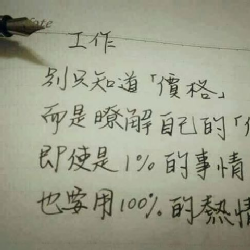 Note
工作
別只知道「價格」
而是瞭解自己的「
即使是1%的事情
也要用100%的熱情